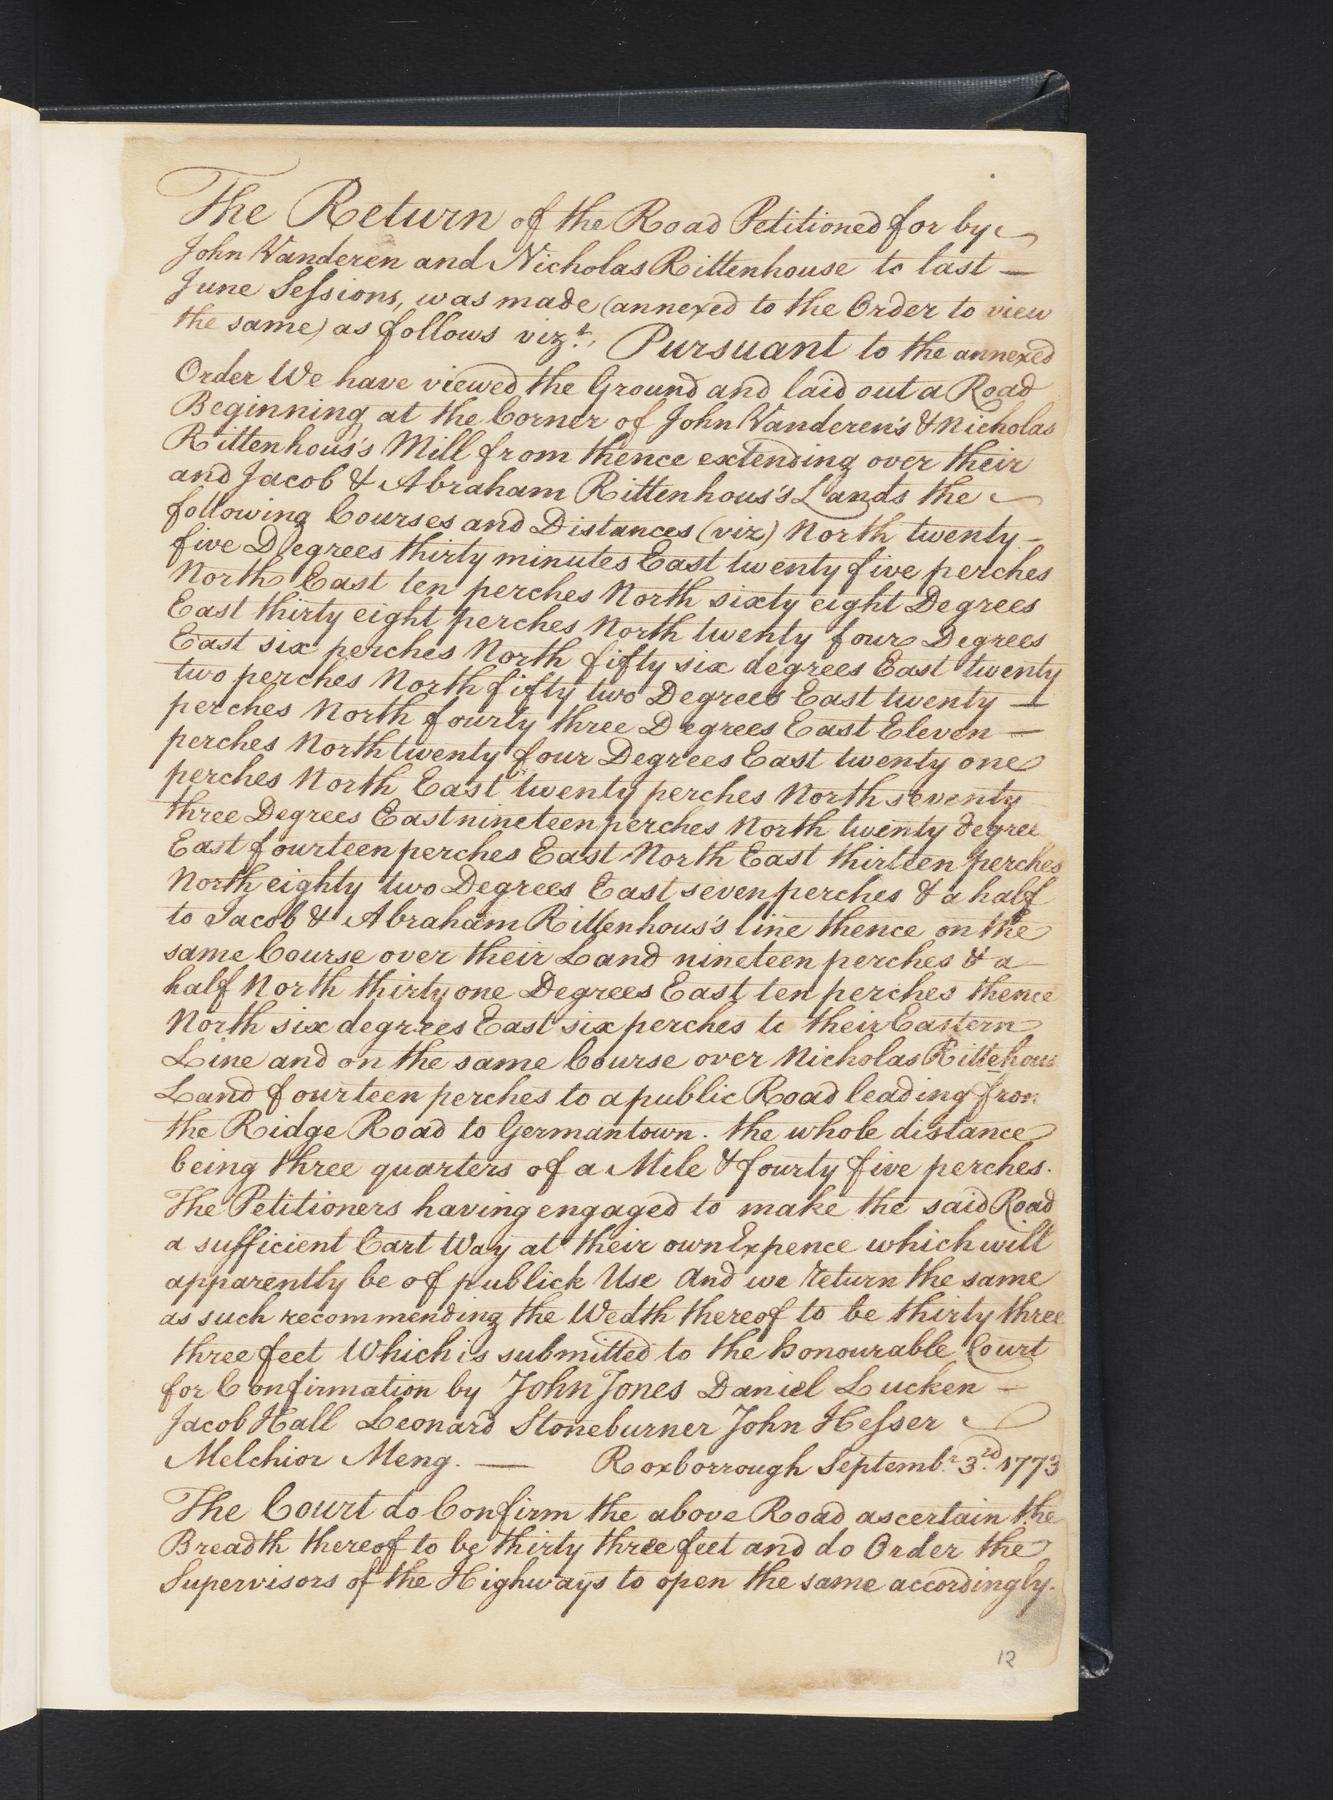 The Return of the Road Petitioned for by
John Vanderen and Nicholas Rittenhouse to last —
June Sessions, was made (annexed to the Order to view
the same) as follows vizt., Pursuant to the annexed
Order We have viewed the Ground and laid out a Road
Beginning at the Corner of John Vanderen's & Nicholas
Rittenhous's Mill from thence extending over their
and Jacob & Abraham Rittenhous's Lands the
following Courses and Distances (viz) North twenty-
five Degrees thirty minutes East twenty five perches
North East ten perches North sixty eight Degrees
East thirty eight perches North twenty four Degrees
East six perches North fifty six degrees East twenty
two perches North fifty two Degrees East twenty —
perches North fourty three Degrees East Eleven —
perches North twenty four Degrees East twenty one
perches North East twenty perches North seventy
three Degrees East nineteen perches North twenty degree
East fourteen perches East North East thirteen perches
North eighty two Degrees East seven perches & a half
to Jacob & Abraham Rittenhous's line thence on the
same Course over their Land nineteen perches & a
half North thirty one Degrees East ten perches thence
North six degrees East six perches to their Eastern
Line and on the same Course over Nicholas Rittehous
Land fourteen perches to a public Road leading from
the Ridge Road to Germantown. the whole distance
being three quarters of a Mile & fourty five perches.
The Petitioners having engaged to make the said Road
a sufficient Cart Way at their own Expence which will
apparently be of publick Use And we return the same
as such recommending the Wedth thereof to be thirty three
three feet Which is submitted to the honourable Court
for Confirmation by John Jones Daniel Lucken —
Jacob Hall Leonard Stoneburner John Hesser
Melchior Meng. — Roxborrough Septembr. 3rd. 1773
The Court do Confirm the above Road ascertain the
Breadth thereof to be thirty three feet and do Order the
Supervisors of the Highways to open the same accordingly.
12